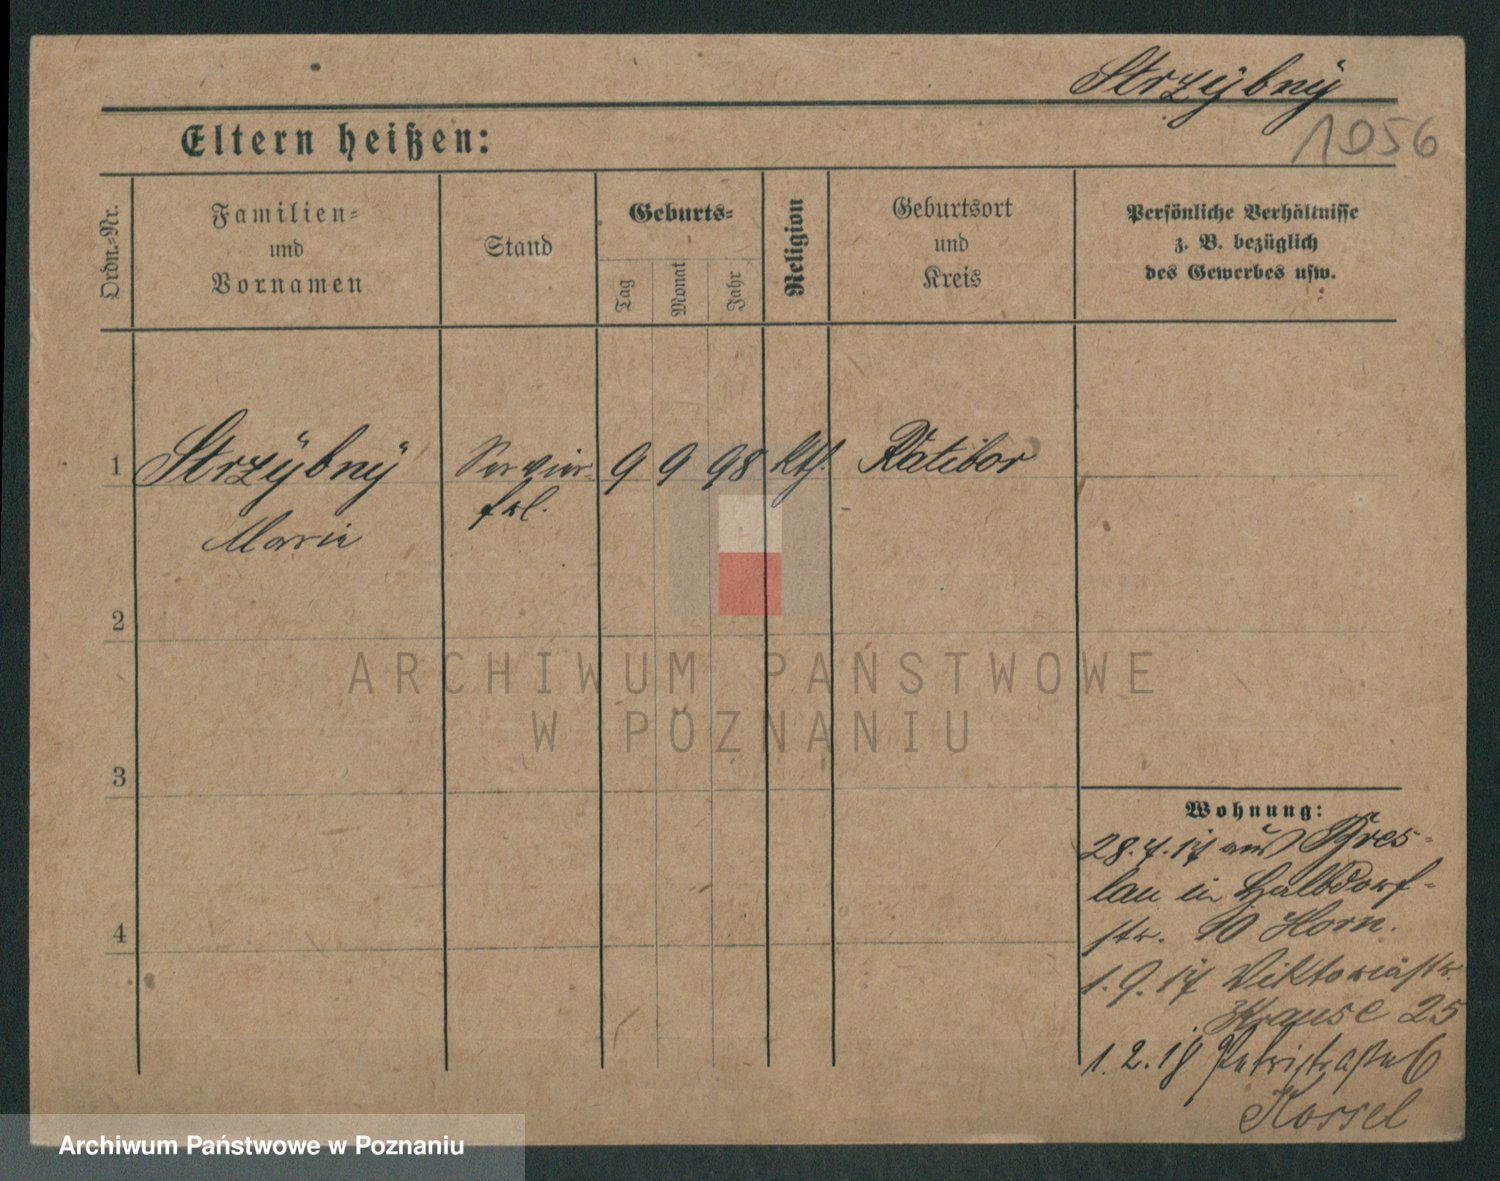 Strzÿbnÿ
1056
Eltern heißen:
Ordn.-Nr.
Familien-
und
Vornamen
Stand
Geburts-
Tag
Monat
Jahr
Religion
Geburtsort
und
Kreis
Persönliche Verhältnisse
z. B. bezüglich
des Gewerbes usw.
1 Strzÿbnÿ Servier- 9 9 98 kth. Ratibor
frl.
Marie
2
3
4
Wohnung:
28.7.17 aus Bres-
lau in Halbdorf-
str. 10 Horn.
1.9.17 Viktoriastr.
Krause 25
1.2.18 Petristraße 6
ARCHIWUM PAŃSTWOWE
W POZNANIU
Archiwum Państwowe w Poznaniu